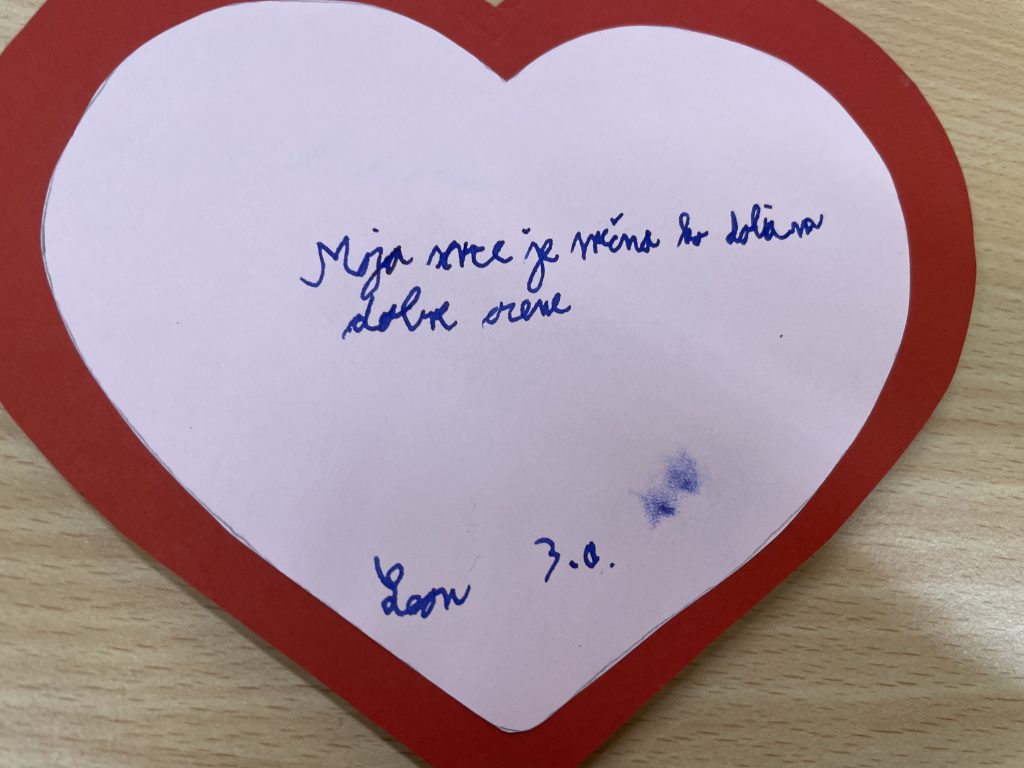 Moja srce je srečna ko dobiva
dobre ocene
Leon 3.a.